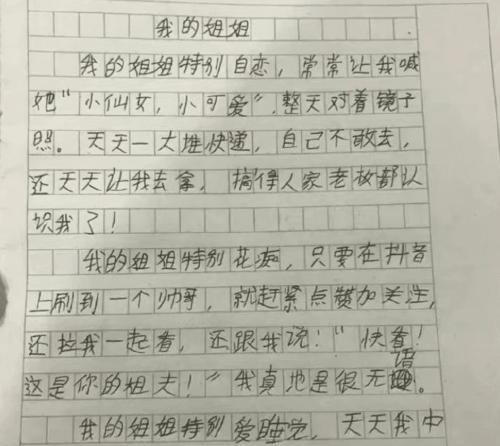 我的姐姐
我的姐姐特别自恋，常常让我喊
她“小仙女，小可爱”，整天对着镜子
照。天天一大堆快递，自己不敢去，
还天天让我去拿，搞得人家老板都认
识我了！
我的姐姐特别花痴，只要在抖音
上刷到一个帅哥，就赶紧点赞加关注，
还拉我一起看，还跟我说！“快看！
这是你的姐夫！”我真地是很无语。
我的姐姐特别爱睡觉，天天我中